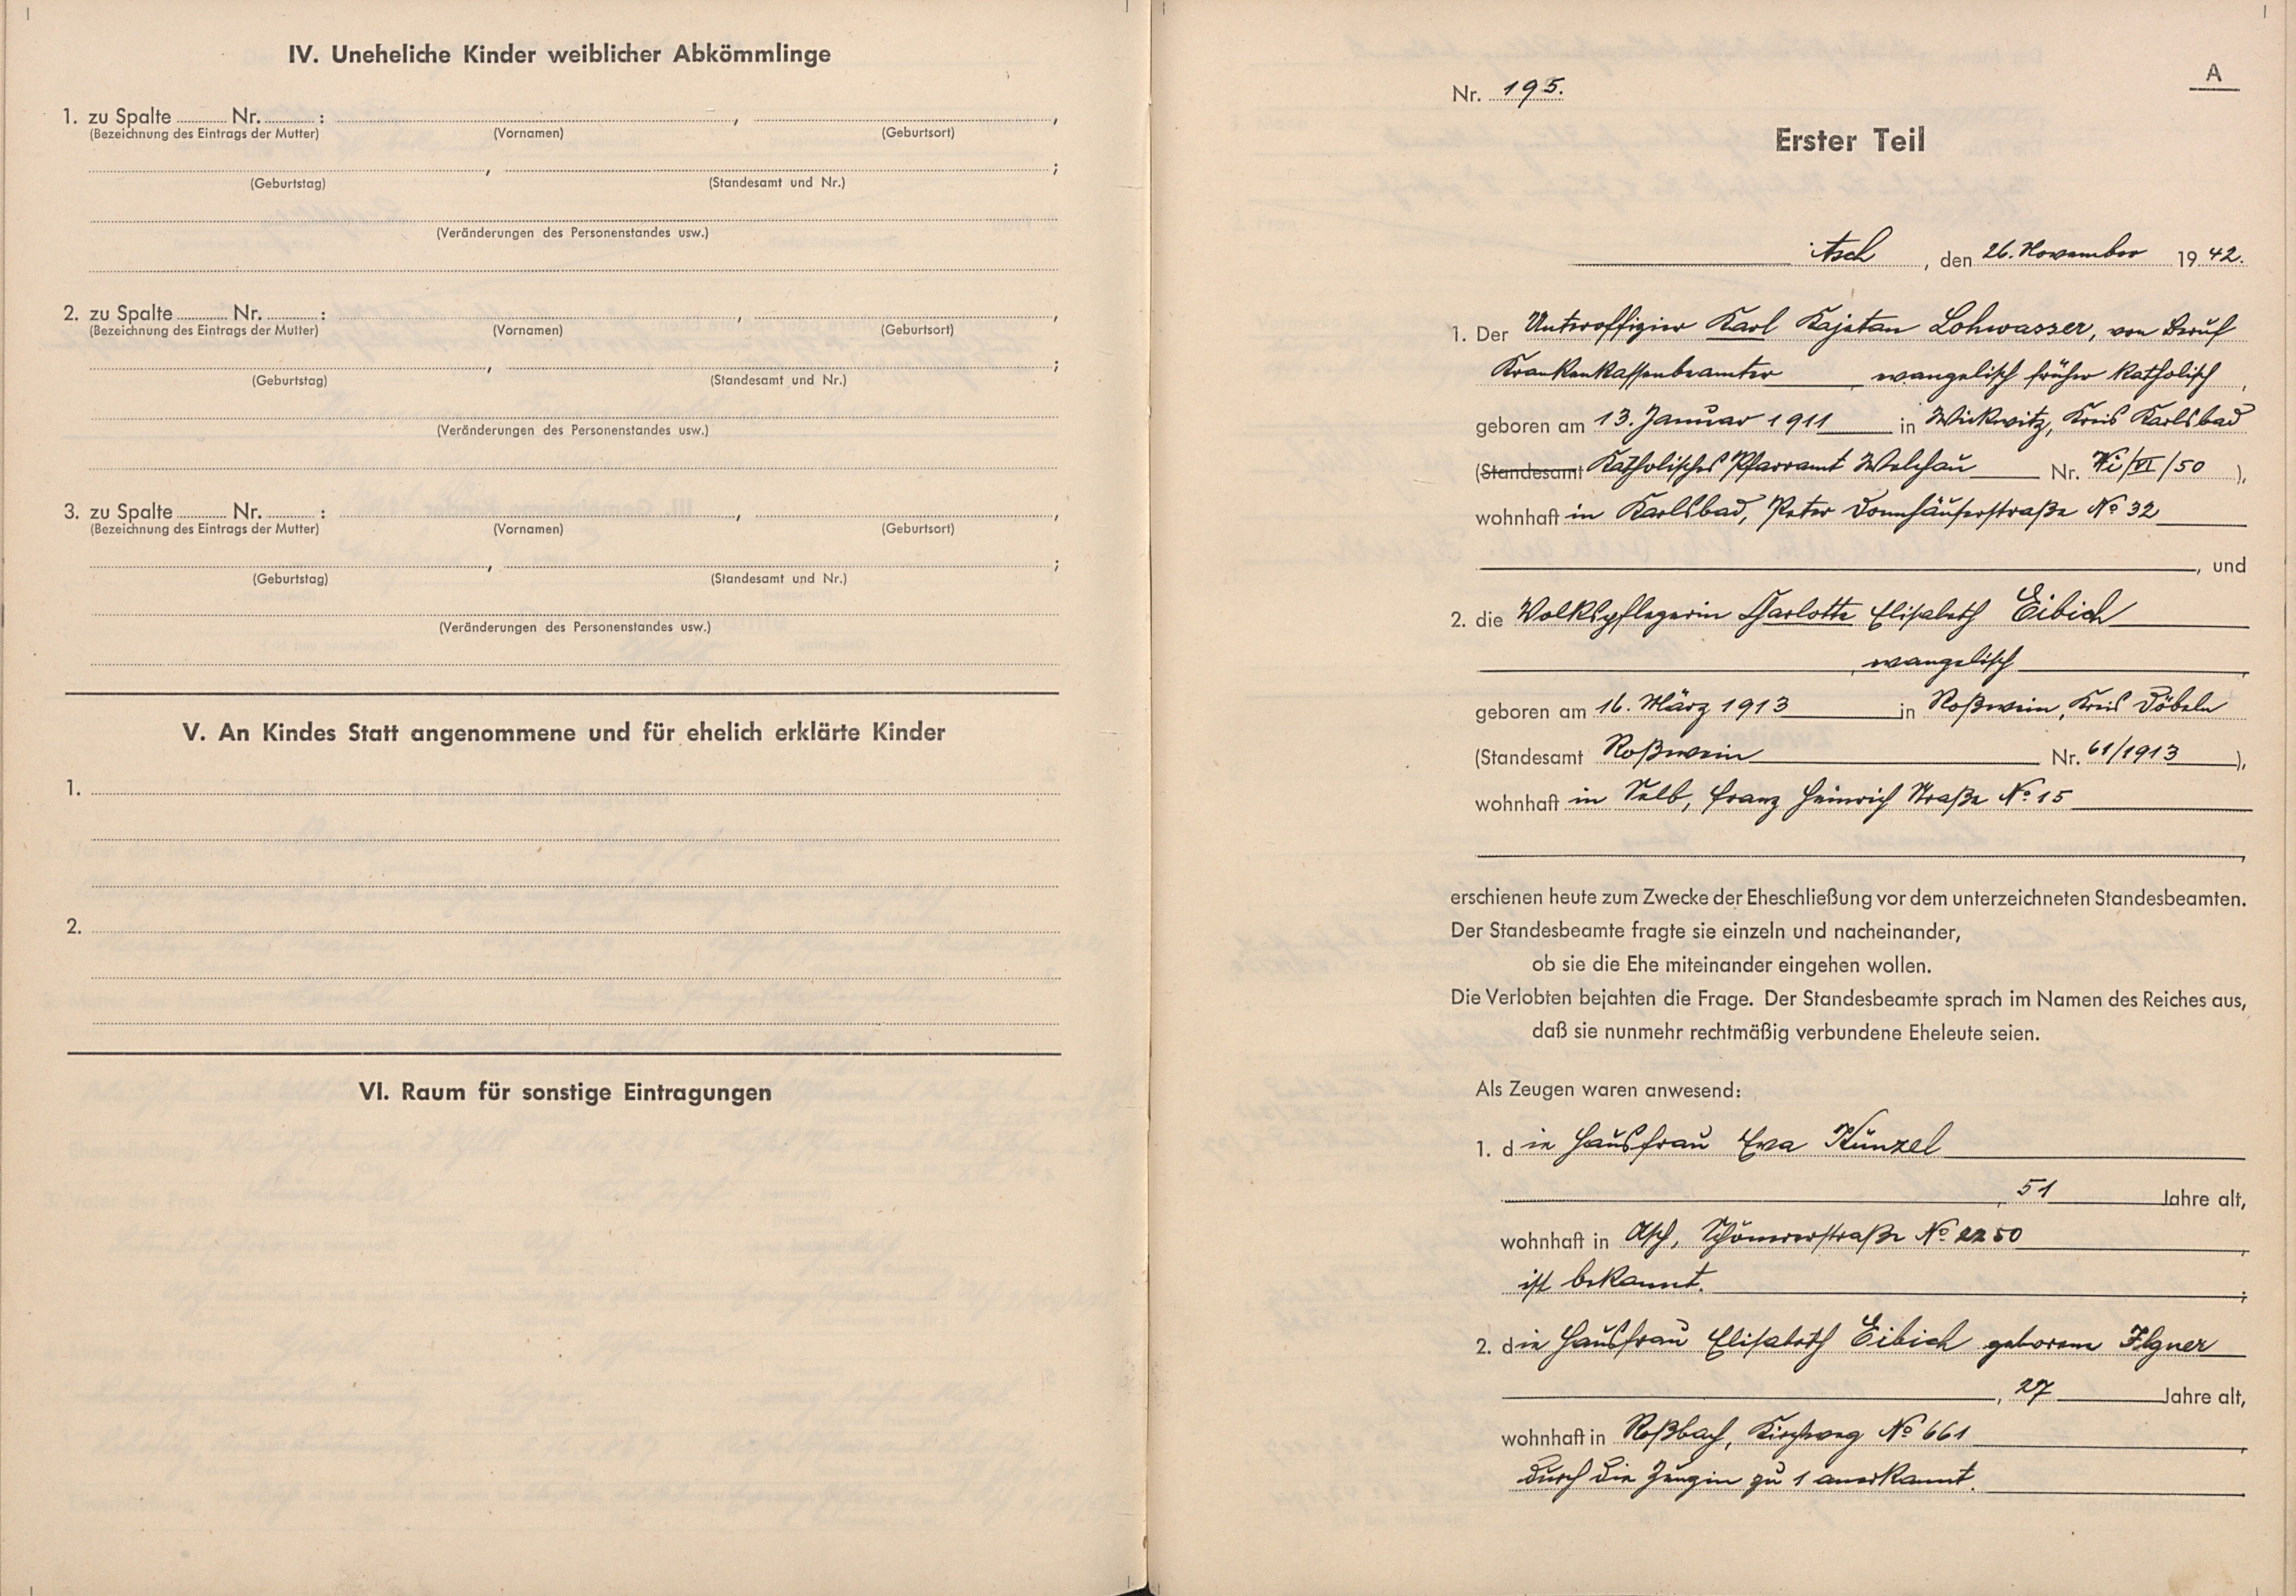 IV. Uneheliche Kinder weiblicher Abkömmlinge
1. zu Spalte ........ Nr. ........ : ........ , ........ ,
(Bezeichnung des Eintrags der Mutter) (Vornamen) (Geburtsort)
........ , ........ ;
(Geburtstag) (Standesamt und Nr.)
(Veränderungen des Personenstandes usw.)
2. zu Spalte ........ Nr. ........ : ........ , ........ ,
(Bezeichnung des Eintrags der Mutter) (Vornamen) (Geburtsort)
........ , ........ ;
(Geburtstag) (Standesamt und Nr.)
(Veränderungen des Personenstandes usw.)
3. zu Spalte ........ Nr. ........ : ........ , ........ ,
(Bezeichnung des Eintrags der Mutter) (Vornamen) (Geburtsort)
........ , ........ ;
(Geburtstag) (Standesamt und Nr.)
(Veränderungen des Personenstandes usw.)
V. An Kindes Statt angenommene und für ehelich erklärte Kinder
1.
2.
VI. Raum für sonstige Eintragungen
A
Nr. 195.
Erster Teil
Asch, den 26. November 1942.
1. Der Unteroffizier Karl Kajetan Lohwasser, von Beruf
Krankenkassenbeamter, evangelisch früher katholisch,
geboren am 13. Januar 1911 in Wickwitz, Kreis Karlsbad
(Standesamt Katholisches Pfarramt Welchau Nr. Wi/VI/50),
wohnhaft in Karlsbad, Peter Donnhäuserstraße No 32
, und
2. die Volkspflegerin Charlotte Elisabeth Eibich
, evangelisch,
geboren am 16. März 1913 in Roßwein, Kreis Döbeln
(Standesamt Roßwein Nr. 61/1913),
wohnhaft in Selb, Franz Heinrich Straße No 15
,
erschienen heute zum Zwecke der Eheschließung vor dem unterzeichneten Standesbeamten.
Der Standesbeamte fragte sie einzeln und nacheinander,
ob sie die Ehe miteinander eingehen wollen.
Die Verlobten bejahten die Frage. Der Standesbeamte sprach im Namen des Reiches aus,
daß sie nunmehr rechtmäßig verbundene Eheleute seien.
Als Zeugen waren anwesend:
1. die Hausfrau Eva Künzel
, 51 Jahre alt,
wohnhaft in Asch, Schönererstraße No 2250,
ist bekannt. ;
2. die Hausfrau Elisabeth Eibich geborene Ilgner
, 27 Jahre alt,
wohnhaft in Roßbach, Kirchweg No 661,
durch die Zeugin zu 1 anerkannt.